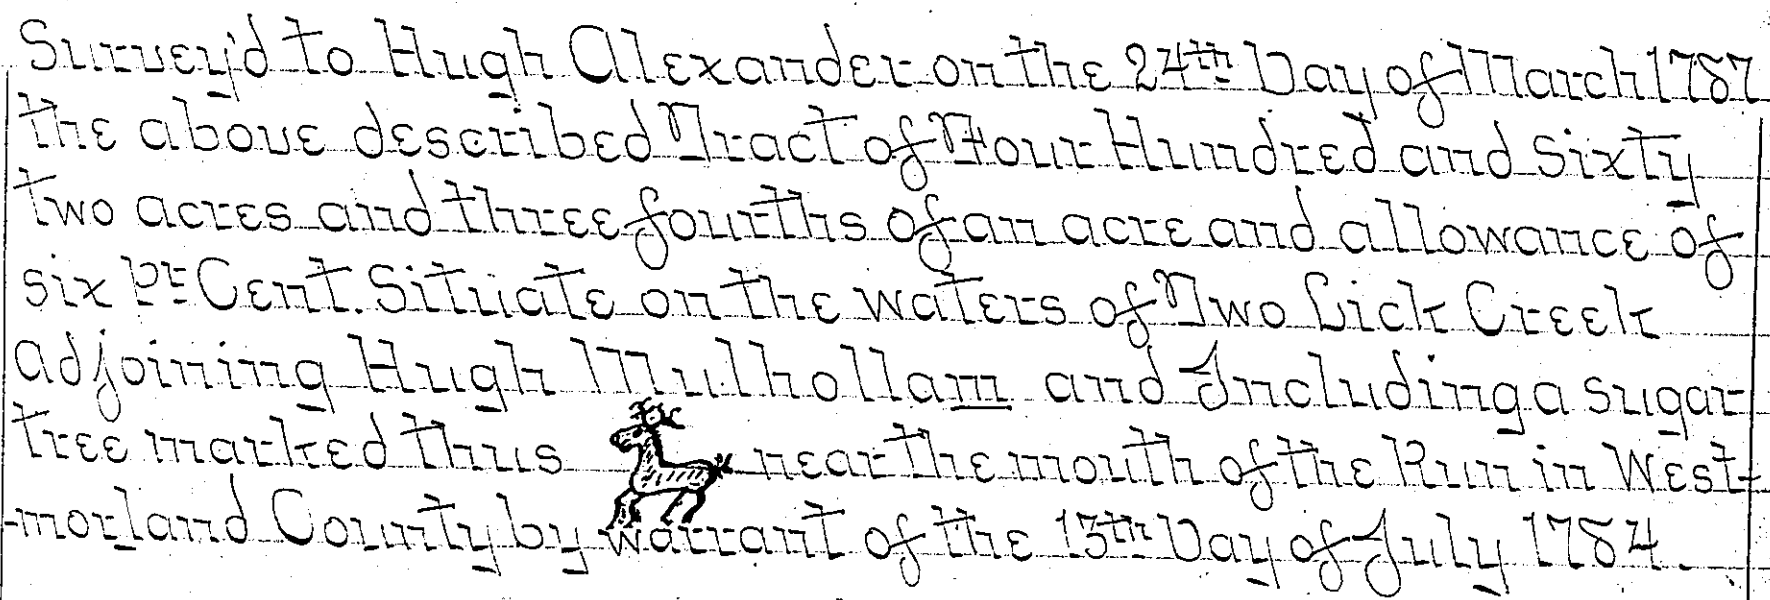 Survey'd to Hugh Alexander on the 24th Day of March 1787
the above described Tract of Four Hundred and Sixty
two acres and three fourths of an acre and allowance of
six Pr Cent. Situate on the waters of Two Lick Creek
adjoining Hugh Mulhollam and Including a sugar
tree marked thus near the mouth of the Run in West-
-morland County by warrant of the 13th Day of July 1784.